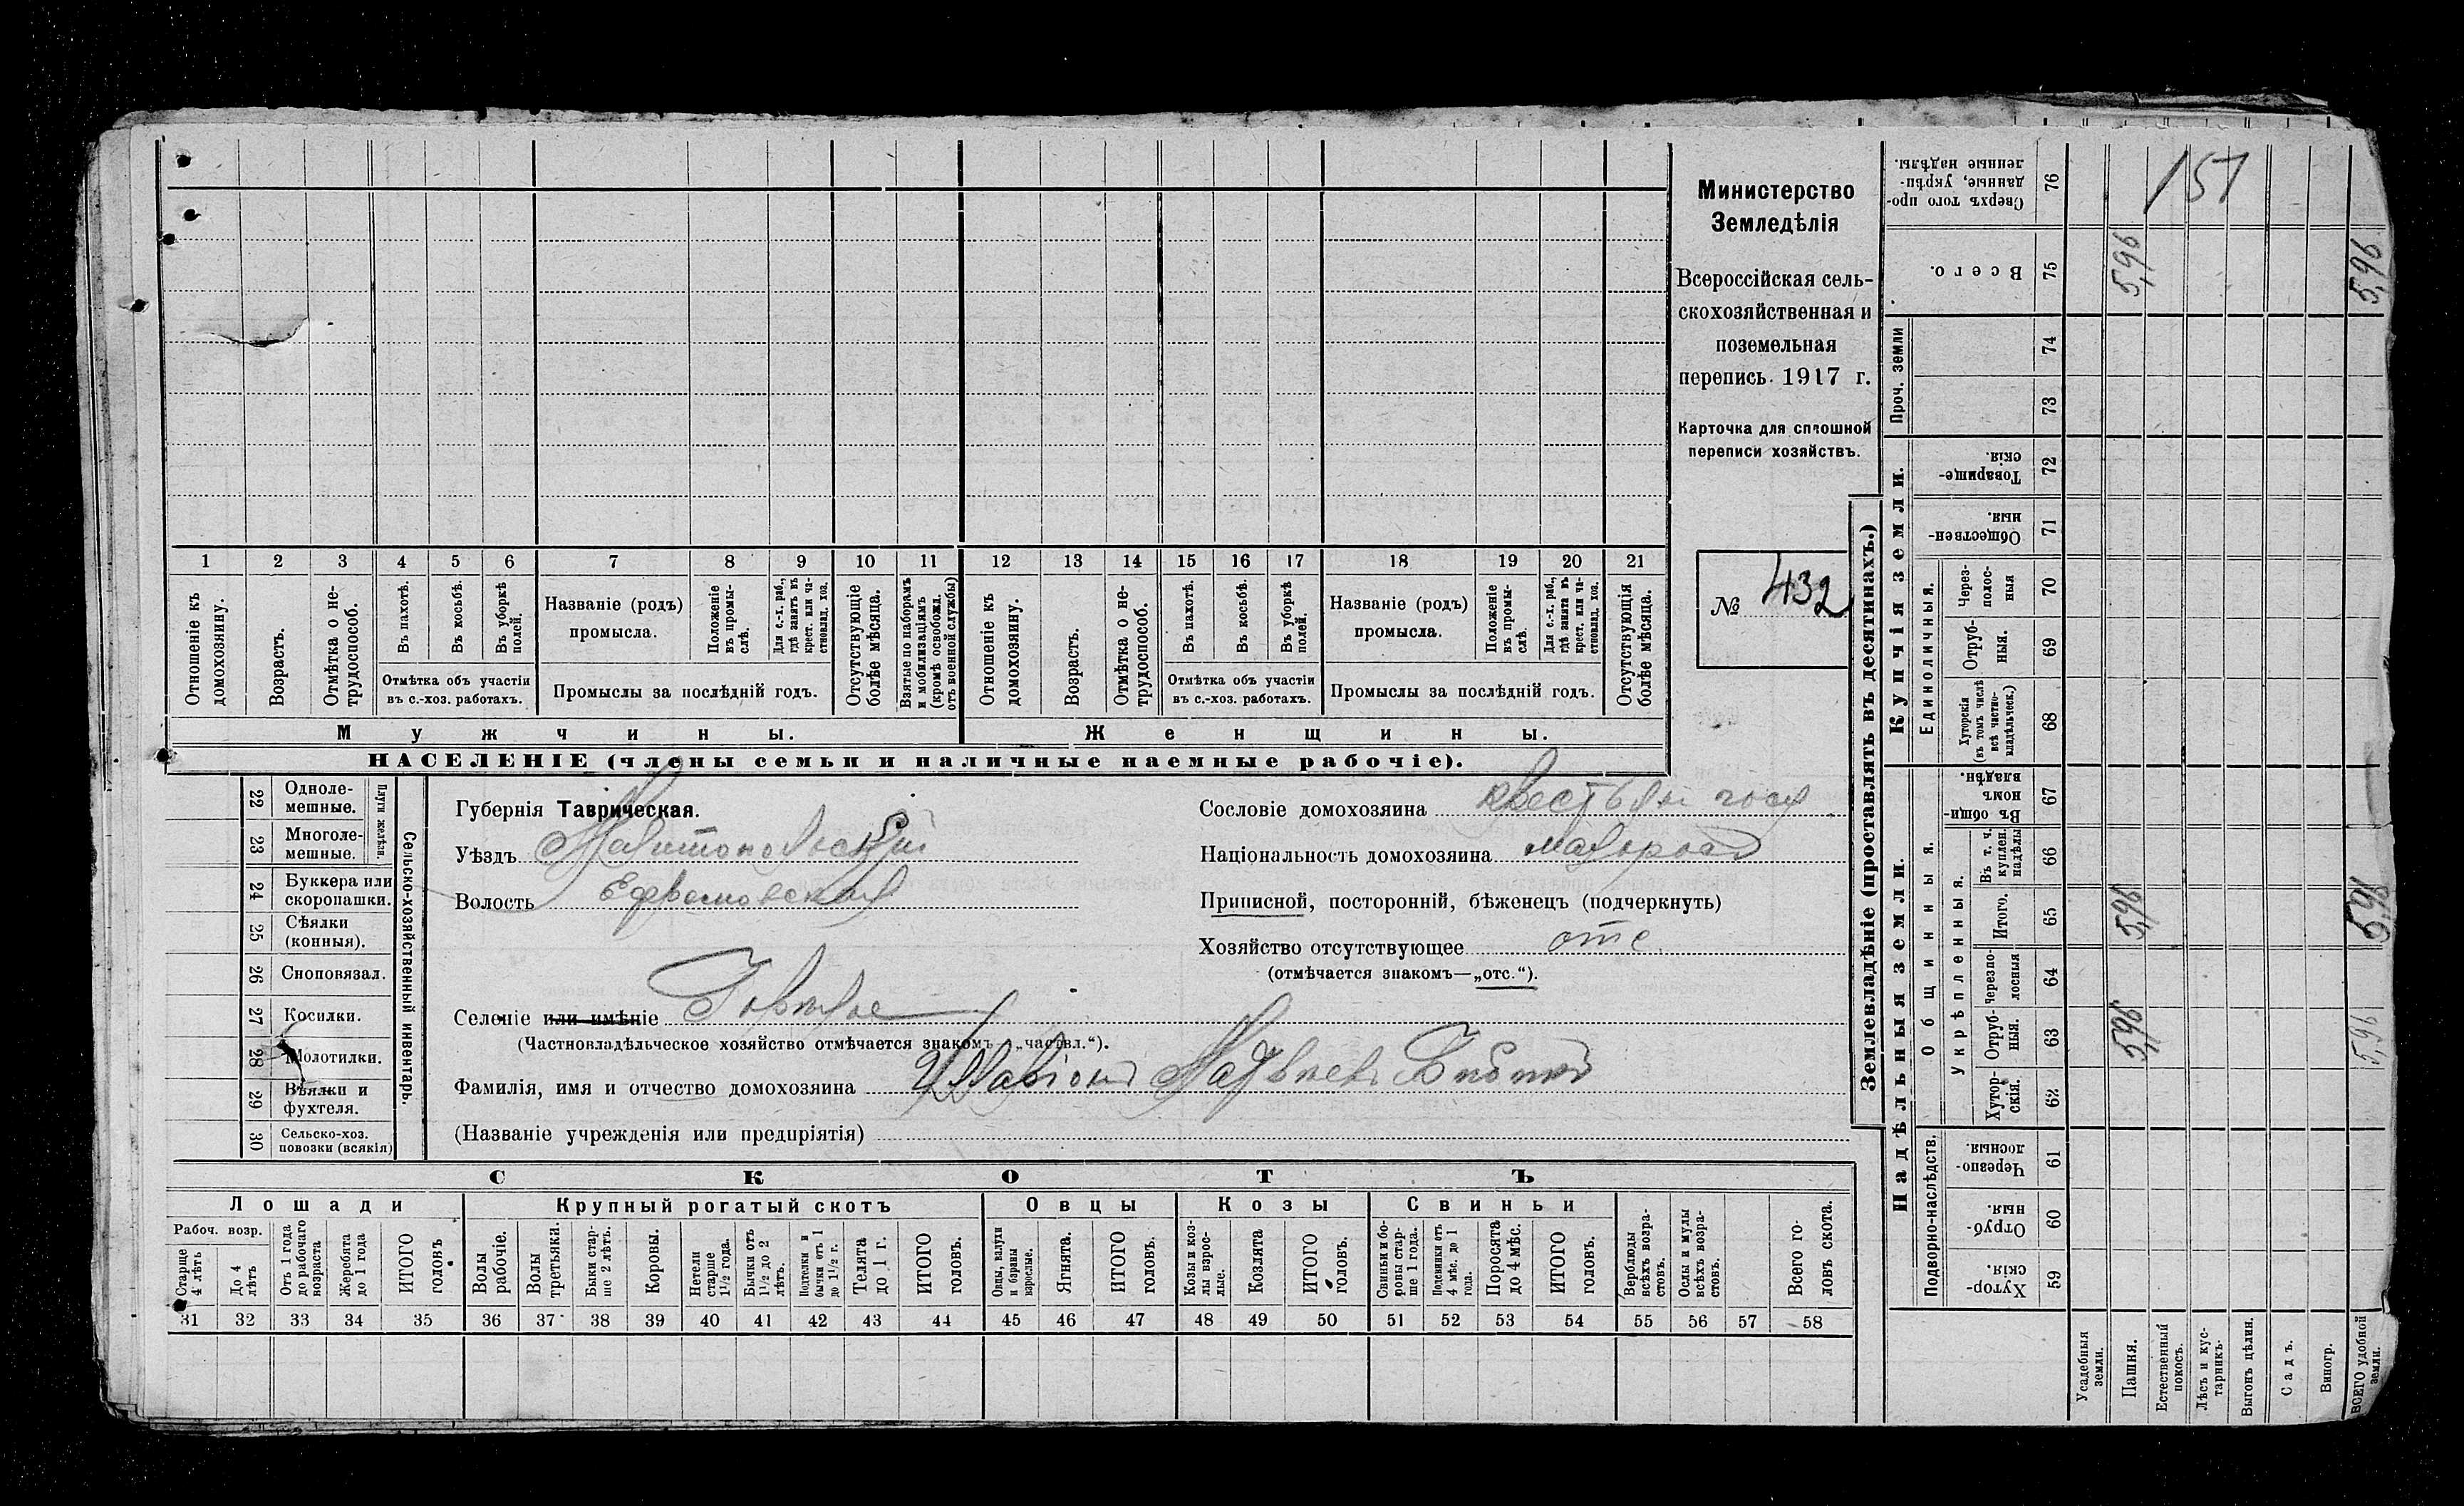 1 2 3 4 5 6 7 8 9 10 11 12 13 14 15 16 17 18 19 20 21
Отношеніе къ домохозяину.
Возрастъ.
Отмѣтка о не-
трудоспособ.
Въ пахотѣ.
Въ косьбѣ.
Въ уборкѣ
полей.
Отмѣтка объ участіи
въ с.-хоз. работахъ.
Названіе (родъ)
промысла.
Положеніе
въ промы-
слѣ.
Для с.-х. раб.,
гдѣ занятъ въ
крест. или ча-
стновлад. хоз.
Промыслы за послѣдній годъ.
Отсутствующіе
болѣе мѣсяца.
Взятые по наборамъ
и мобилизаціямъ
(кромѣ освобожд.
отъ военной службы)
Отношеніе къ
домохозяину.
Возрастъ.
Отмѣтка о не-
трудоспособ.
Въ пахотѣ.
Въ косьбѣ.
Въ уборкѣ
полей.
Отмѣтка объ участіи
въ с.-хоз. работахъ.
Названіе (родъ)
промысла.
Положеніе
въ промы-
слѣ.
Для с.-х. раб.,
гдѣ занятъ въ
крест. или ча-
стновлад. хоз.
Промыслы за послѣдній годъ.
Отсутствующія
болѣе мѣсяца.
Мужчины.
Женщины.
НАСЕЛЕНІЕ (члены семьи и наличные наемные рабочіе).
Министерство
Земледѣлія
Всероссійская сель-
скохозяйственная и
поземельная
перепись 1917 г.
Карточка для сплошной
переписи хозяйствъ.
№ 432
22 Одноле-
мешные.
23 Многоле-
мешные.
Плуги желѣзн.
24 Буккера или
скоропашки.
25 Сѣялки
(конныя).
26 Сноповязал.
27 Косилки.
28 Молотилки.
29 Вѣялки и
фухтеля.
30 Сельско-хоз.
повозки (всякія)
Сельско-хозяйственный инвентарь.
Губернія Таврическая.
Уѣздъ Мелитопольскій
Волость Ефремовская
Селеніе или имѣніе Горькое
(Частновладѣльческое хозяйство отмѣчается знакомъ „частвл.“).
Фамилія, имя и отчество домохозяина
(Названіе учрежденія или предпріятія)
Сословіе домохозяина
Національность домохозяина малороссъ
Приписной, посторонній, бѣженецъ (подчеркнуть)
Хозяйство отсутствующее отс.
(отмѣчается знакомъ—„отс.“).
СКОТЪ
Лошади
Крупный рогатый скотъ
Овцы
Козы
Свиньи
Рабоч. возр.
Старше
4 лѣтъ
До 4
лѣтъ
Отъ 1 года
до рабочаго
возраста
Жеребята
до 1 года
ИТОГО
головъ
Волы
рабочіе.
Волы
третьяки.
Быки стар-
ше 2 лѣтъ.
Коровы.
Нетели
старше
1½ года.
Бычки отъ
1½ до 2
лѣтъ.
Подтелки и
бычки отъ 1
до 1½ г.
Телята
до 1 г.
ИТОГО
головъ.
Овцы, валухи
и бараны
взрослые.
Ягнята.
ИТОГО
головъ.
Козы и коз-
лы взрос-
лые.
Козлята
ИТОГО
головъ.
Свиньи и бо-
ровы стар-
ше 1 года.
Подсвинки отъ
4 мѣс. до 1
года.
Поросята
до 4 мѣс.
ИТОГО
головъ.
Верблюды
всѣхъ возра-
стовъ.
Ослы и мулы
всѣхъ возра-
стовъ.
Всего го-
ловъ скота.
31 32 33 34 35 36 37 38 39 40 41 42 43 44 45 46 47 48 49 50 51 52 53 54 55 56 57 58
Землевладѣніе (проставлять въ десятинахъ.)
151
Сверхъ того про-
данные, укрѣп-
ленные надѣлы.
76
Всего.
75
5,96
5,96
Проч. земли
74
73
Купчія земли.
Товарище-
скія.
72
Обществен-
ныя.
71
Единоличныя.
Через-
полос-
ныя
70
Отруб-
ныя.
69
Хуторскія
(въ томъ числѣ
всѣ частно-
владѣльческ.)
68
Надѣльныя земли.
Общинныя.
Въ общин-
номъ
владѣн.
67
Укрѣпленныя.
Въ т. ч.
куплен.
надѣлы
66
Итого.
65
5,96
5,96
Черезпо-
лосныя
64
Отруб-
ныя.
63
5,96
5,96
Хутор-
скія.
62
Подворно-наслѣдств.
Черезпо-
лосныя.
61
Отруб-
ныя.
60
Хутор-
скія.
59
Усадебныя
земли.
Пашня.
Естественный
покосъ.
Лѣсъ и кус-
тарникъ.
Выгонъ цѣлин.
Садъ.
Виногр.
ВСЕГО удобной
земли.